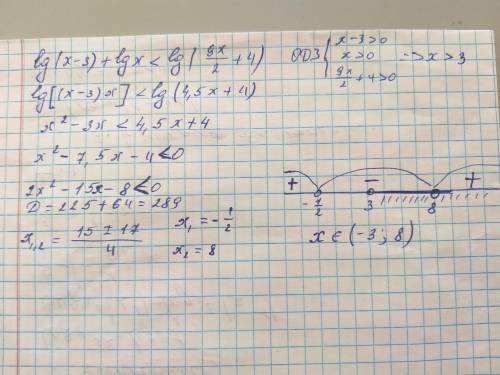 lg(x-3)+lg x < lg(9x/2 + 4)
lg[(x-3)x] < lg(4,5x+4)
x² - 3x < 4,5x+4
x² - 7,5x - 4 < 0
2x² - 15x - 8 < 0
D = 225 + 64 = 289
x₁,₂ = (15 ± 17)/4
x₁ = -1/2
x₂ = 8
ОДЗ { x-3>0
x>0
9x/2 + 4>0
-> x > 3
+ − +
-1/2 3 8
x ∈ (-3; 8)